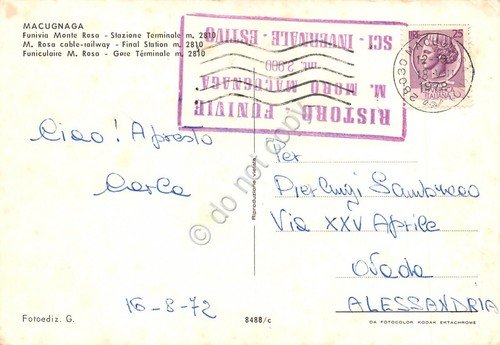 MACUGNAGA
Funivia Monte Rosa - Stazione Terminale m. 2810
M. Rosa cable-railway - Final Station m. 2810
Funiculaire M. Rosa - Gare Términal m. 2810
RISTORO FUNIVIE
M. MORO MACUGNAGA
mt. 2.900
SCI - INVERNALE - ESTIVO
LIRE 25
28030 MACUGNAGA
1972
Ciao! A presto
Carla
16-8-72
Per
Pierluigi
Via XXV Aprile
Ovada
ALESSANDRIA
Riproduzione vietata
do not copy
Fotoediz. G.
8488/c
DA FOTOCOLOR KODAK EKTACHROME